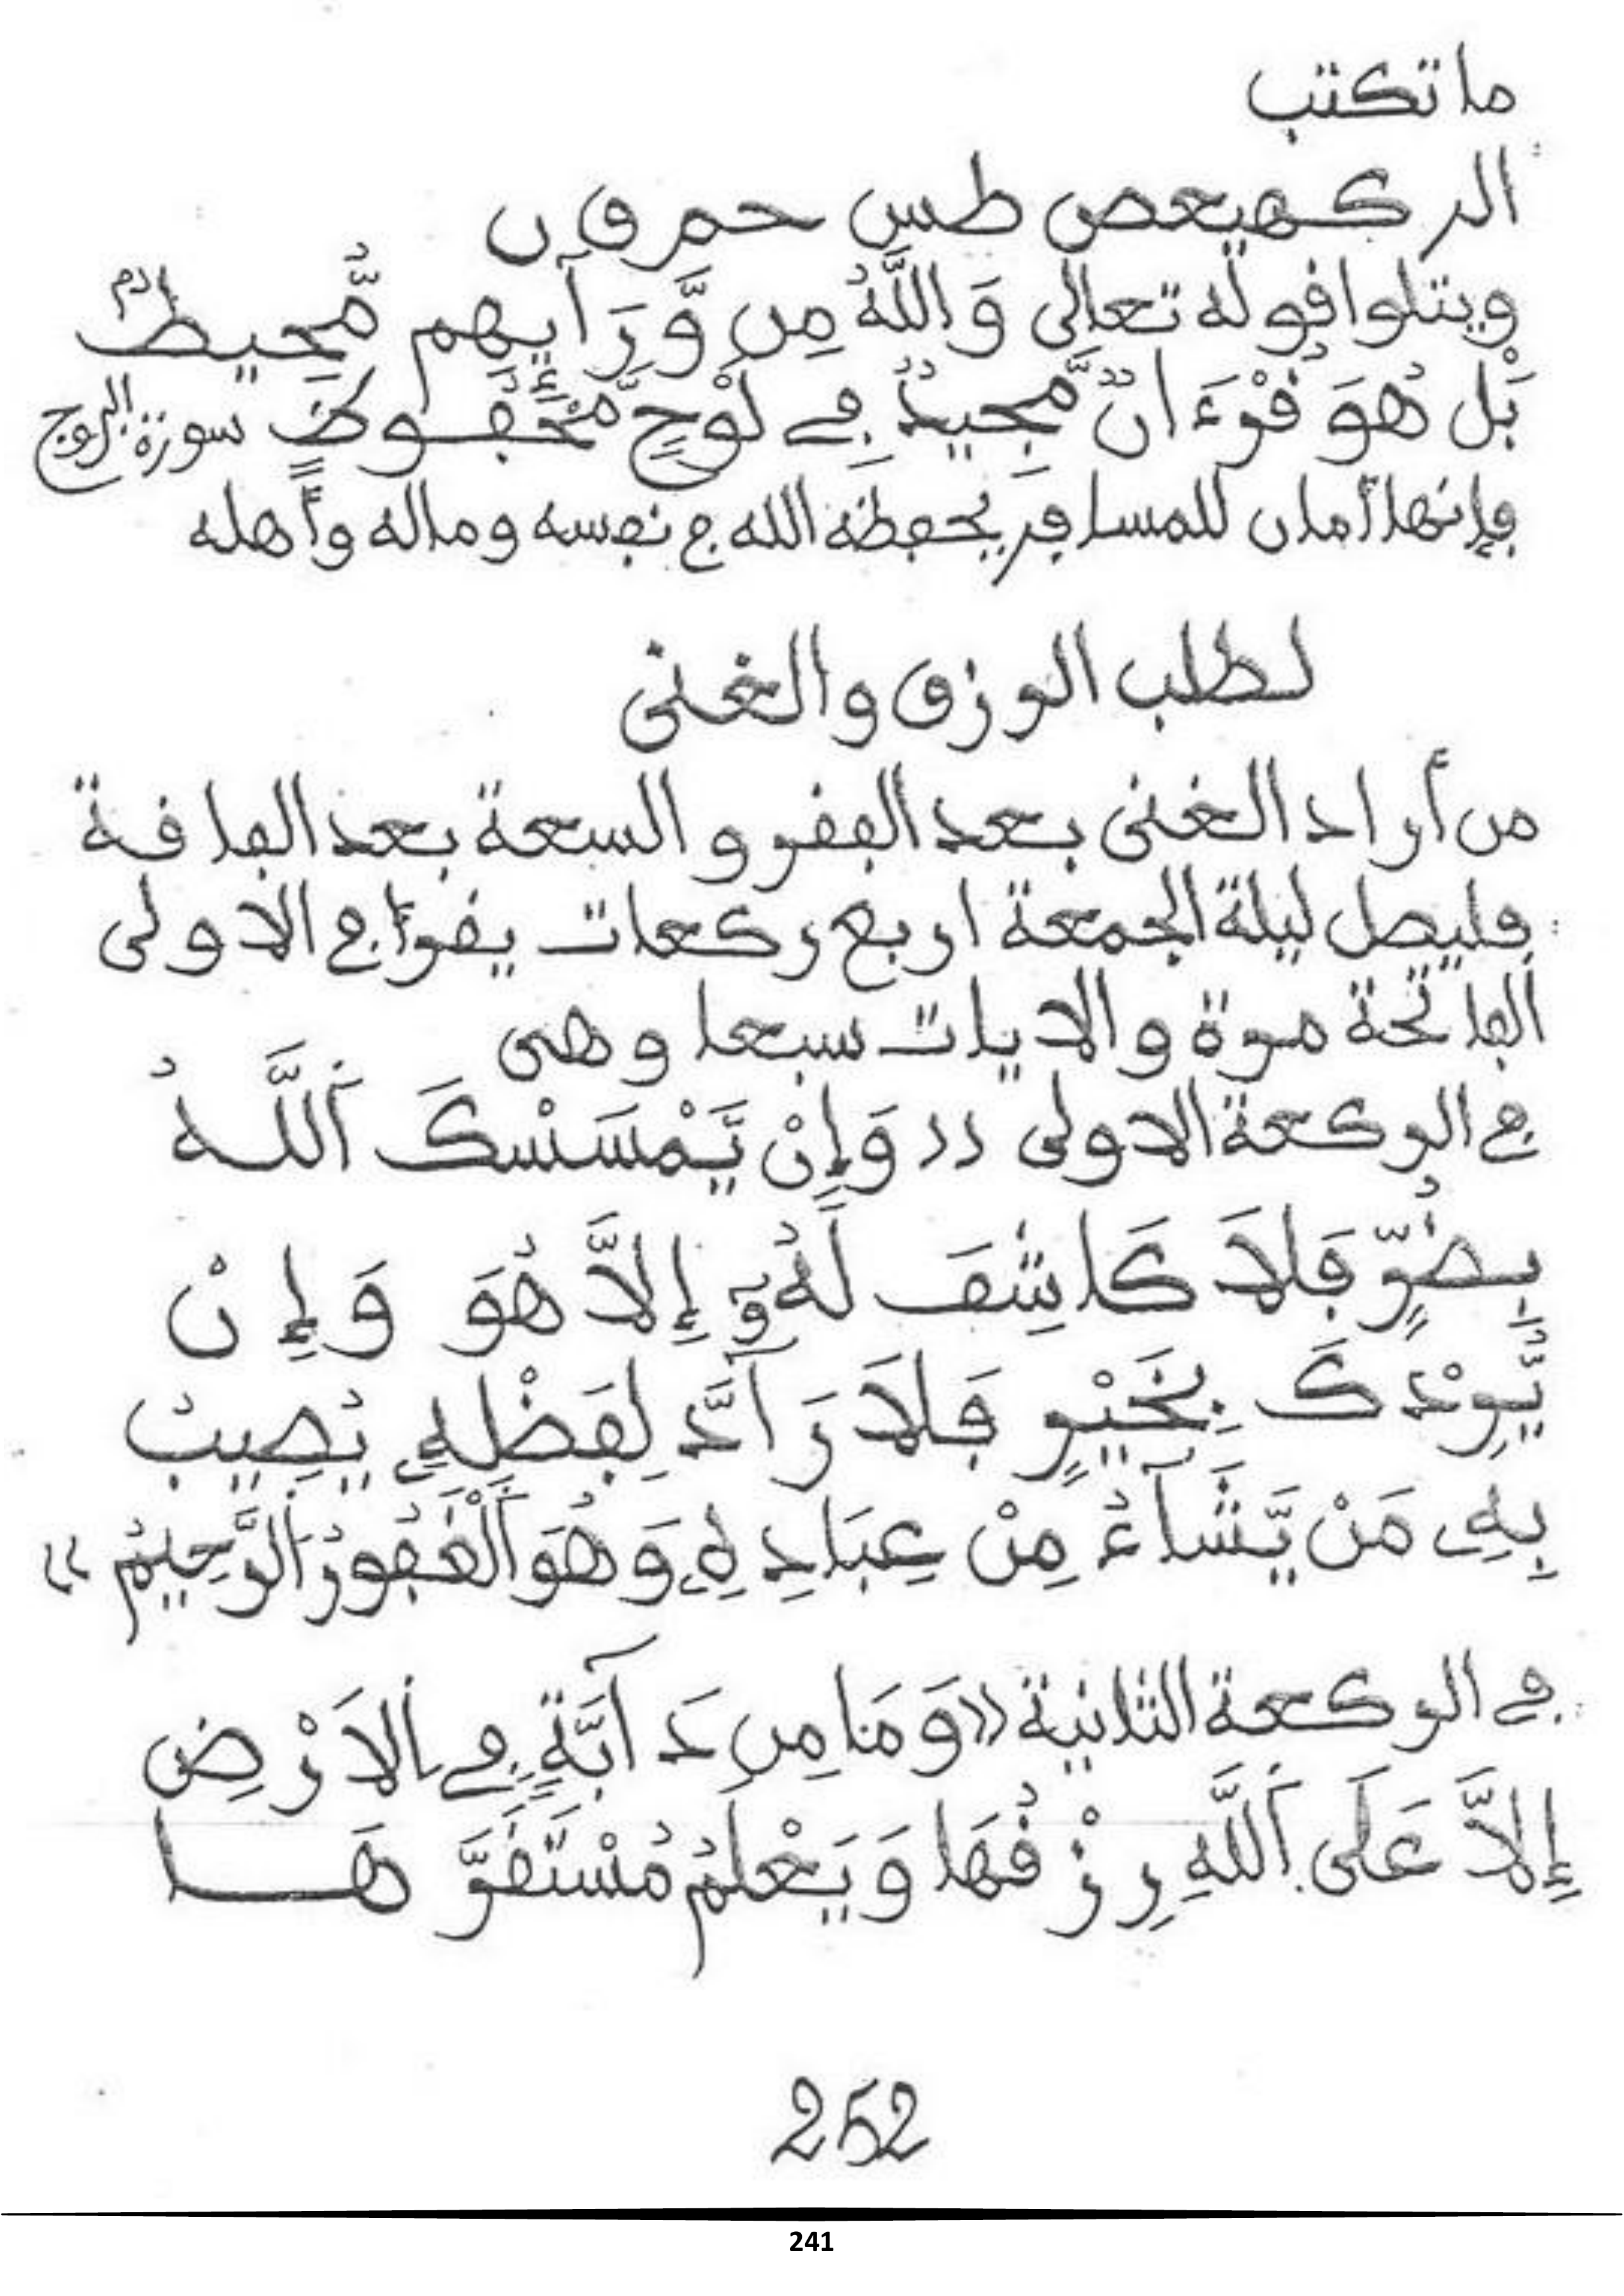 ما تكتب
الر كهيعص طس حم ق ن
ويتلوا قوله تعالى وَاللَّهُ مِن وَّرَآيِهِم مُّحِيطٌ
بَلْ هُوَ قُرْءَانٌ مَّجِيدٌ فِي لَوْحٍ مَّحْفُوظٍ سورة البروج
فإنها أمان للمسافر يحفظه الله في نفسه وماله وأهله
لطلب الرزق والغنى
من أراد الغنى بعد الفقر والسعة بعد الفاقة
فليصل ليلة الجمعة اربع ركعات يقرأ في الاولى
الفاتحة مرة والايات سبعا وهي
في الركعة الاولى «وَإِنْ يَّمْسَسْكَ اَللَّهُ
بِضُرٍّ فَلَا كَاشِفَ لَهُۥٓ إِلَّا هُوَ وَإِنْ
يُّرِدْكَ بِخَيْرٍ فَلَا رَآدَّ لِفَضْلِهِۦ يُصِيبُ
بِهِۦ مَنْ يَّشَآءُ مِنْ عِبَادِهِۦ وَهُوَ اَلْغَفُورُ اَلرَّحِيمُ»
في الركعة الثانية «وَمَا مِن دَآبَّةٍ فِي اِلَارْضِ
إِلَّا عَلَى اَللَّهِ رِزْقُهَا وَيَعْلَمُ مُسْتَقَرَّهَا
252
241